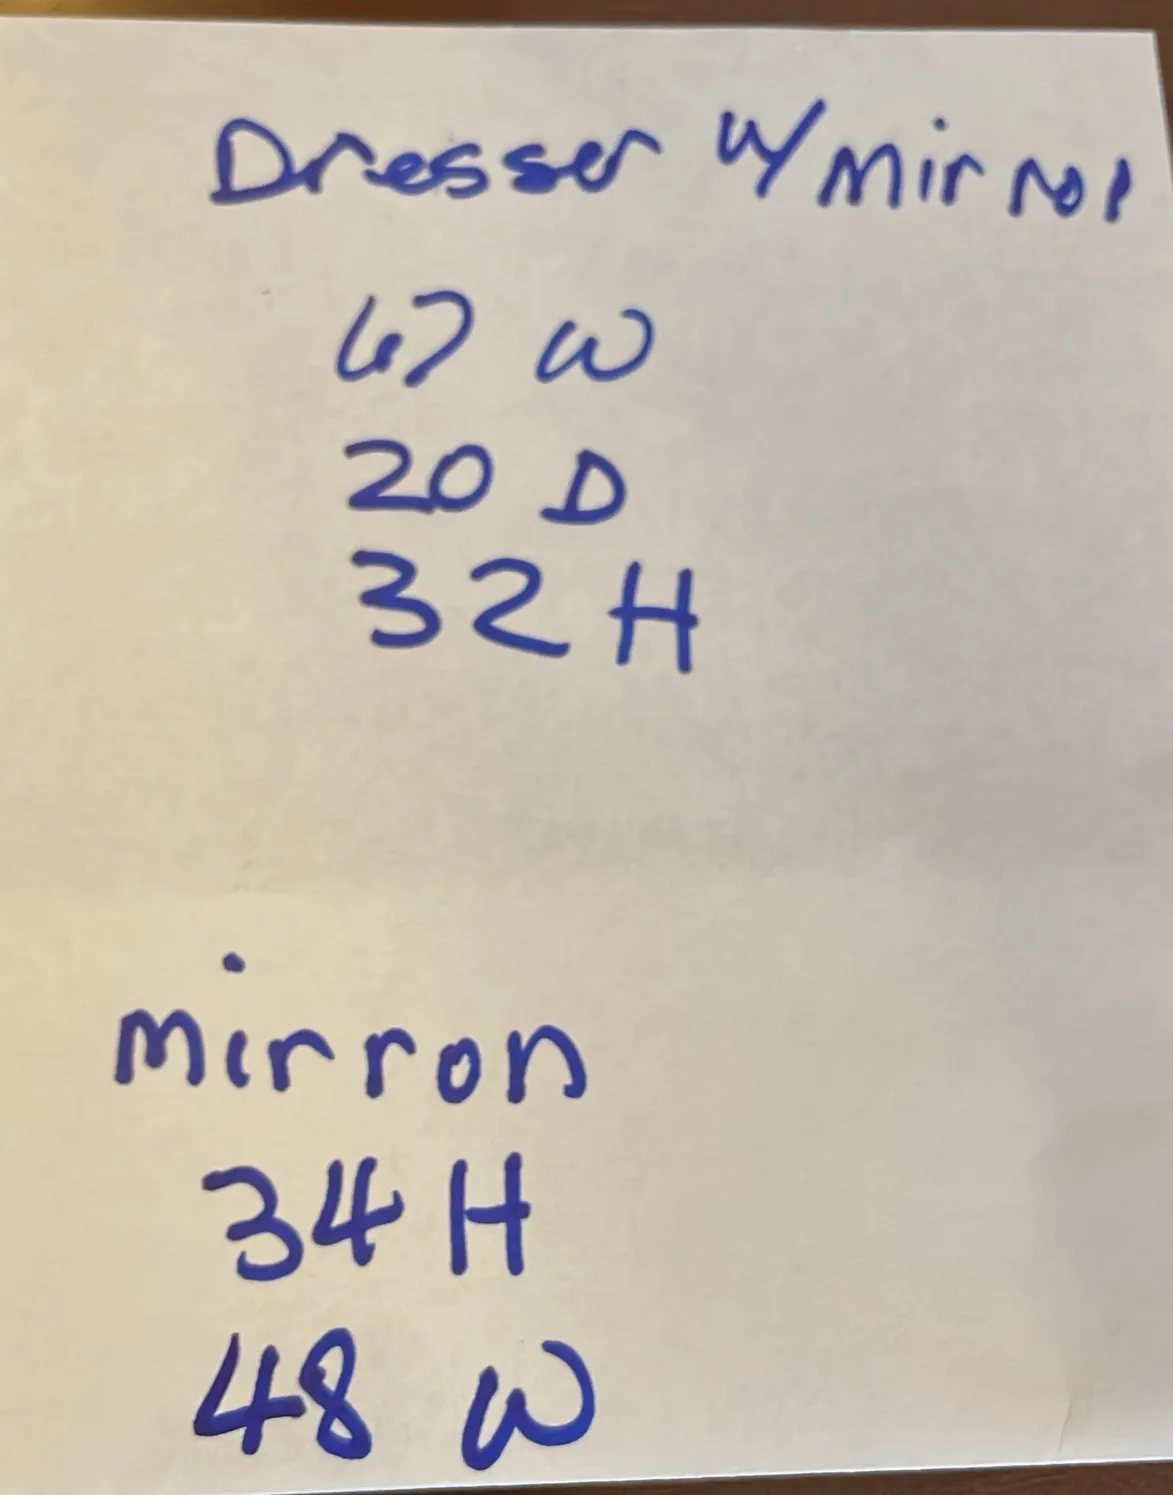 Dresser w/mirror
67 W
20 D
32 H
mirror
34 H
48 W